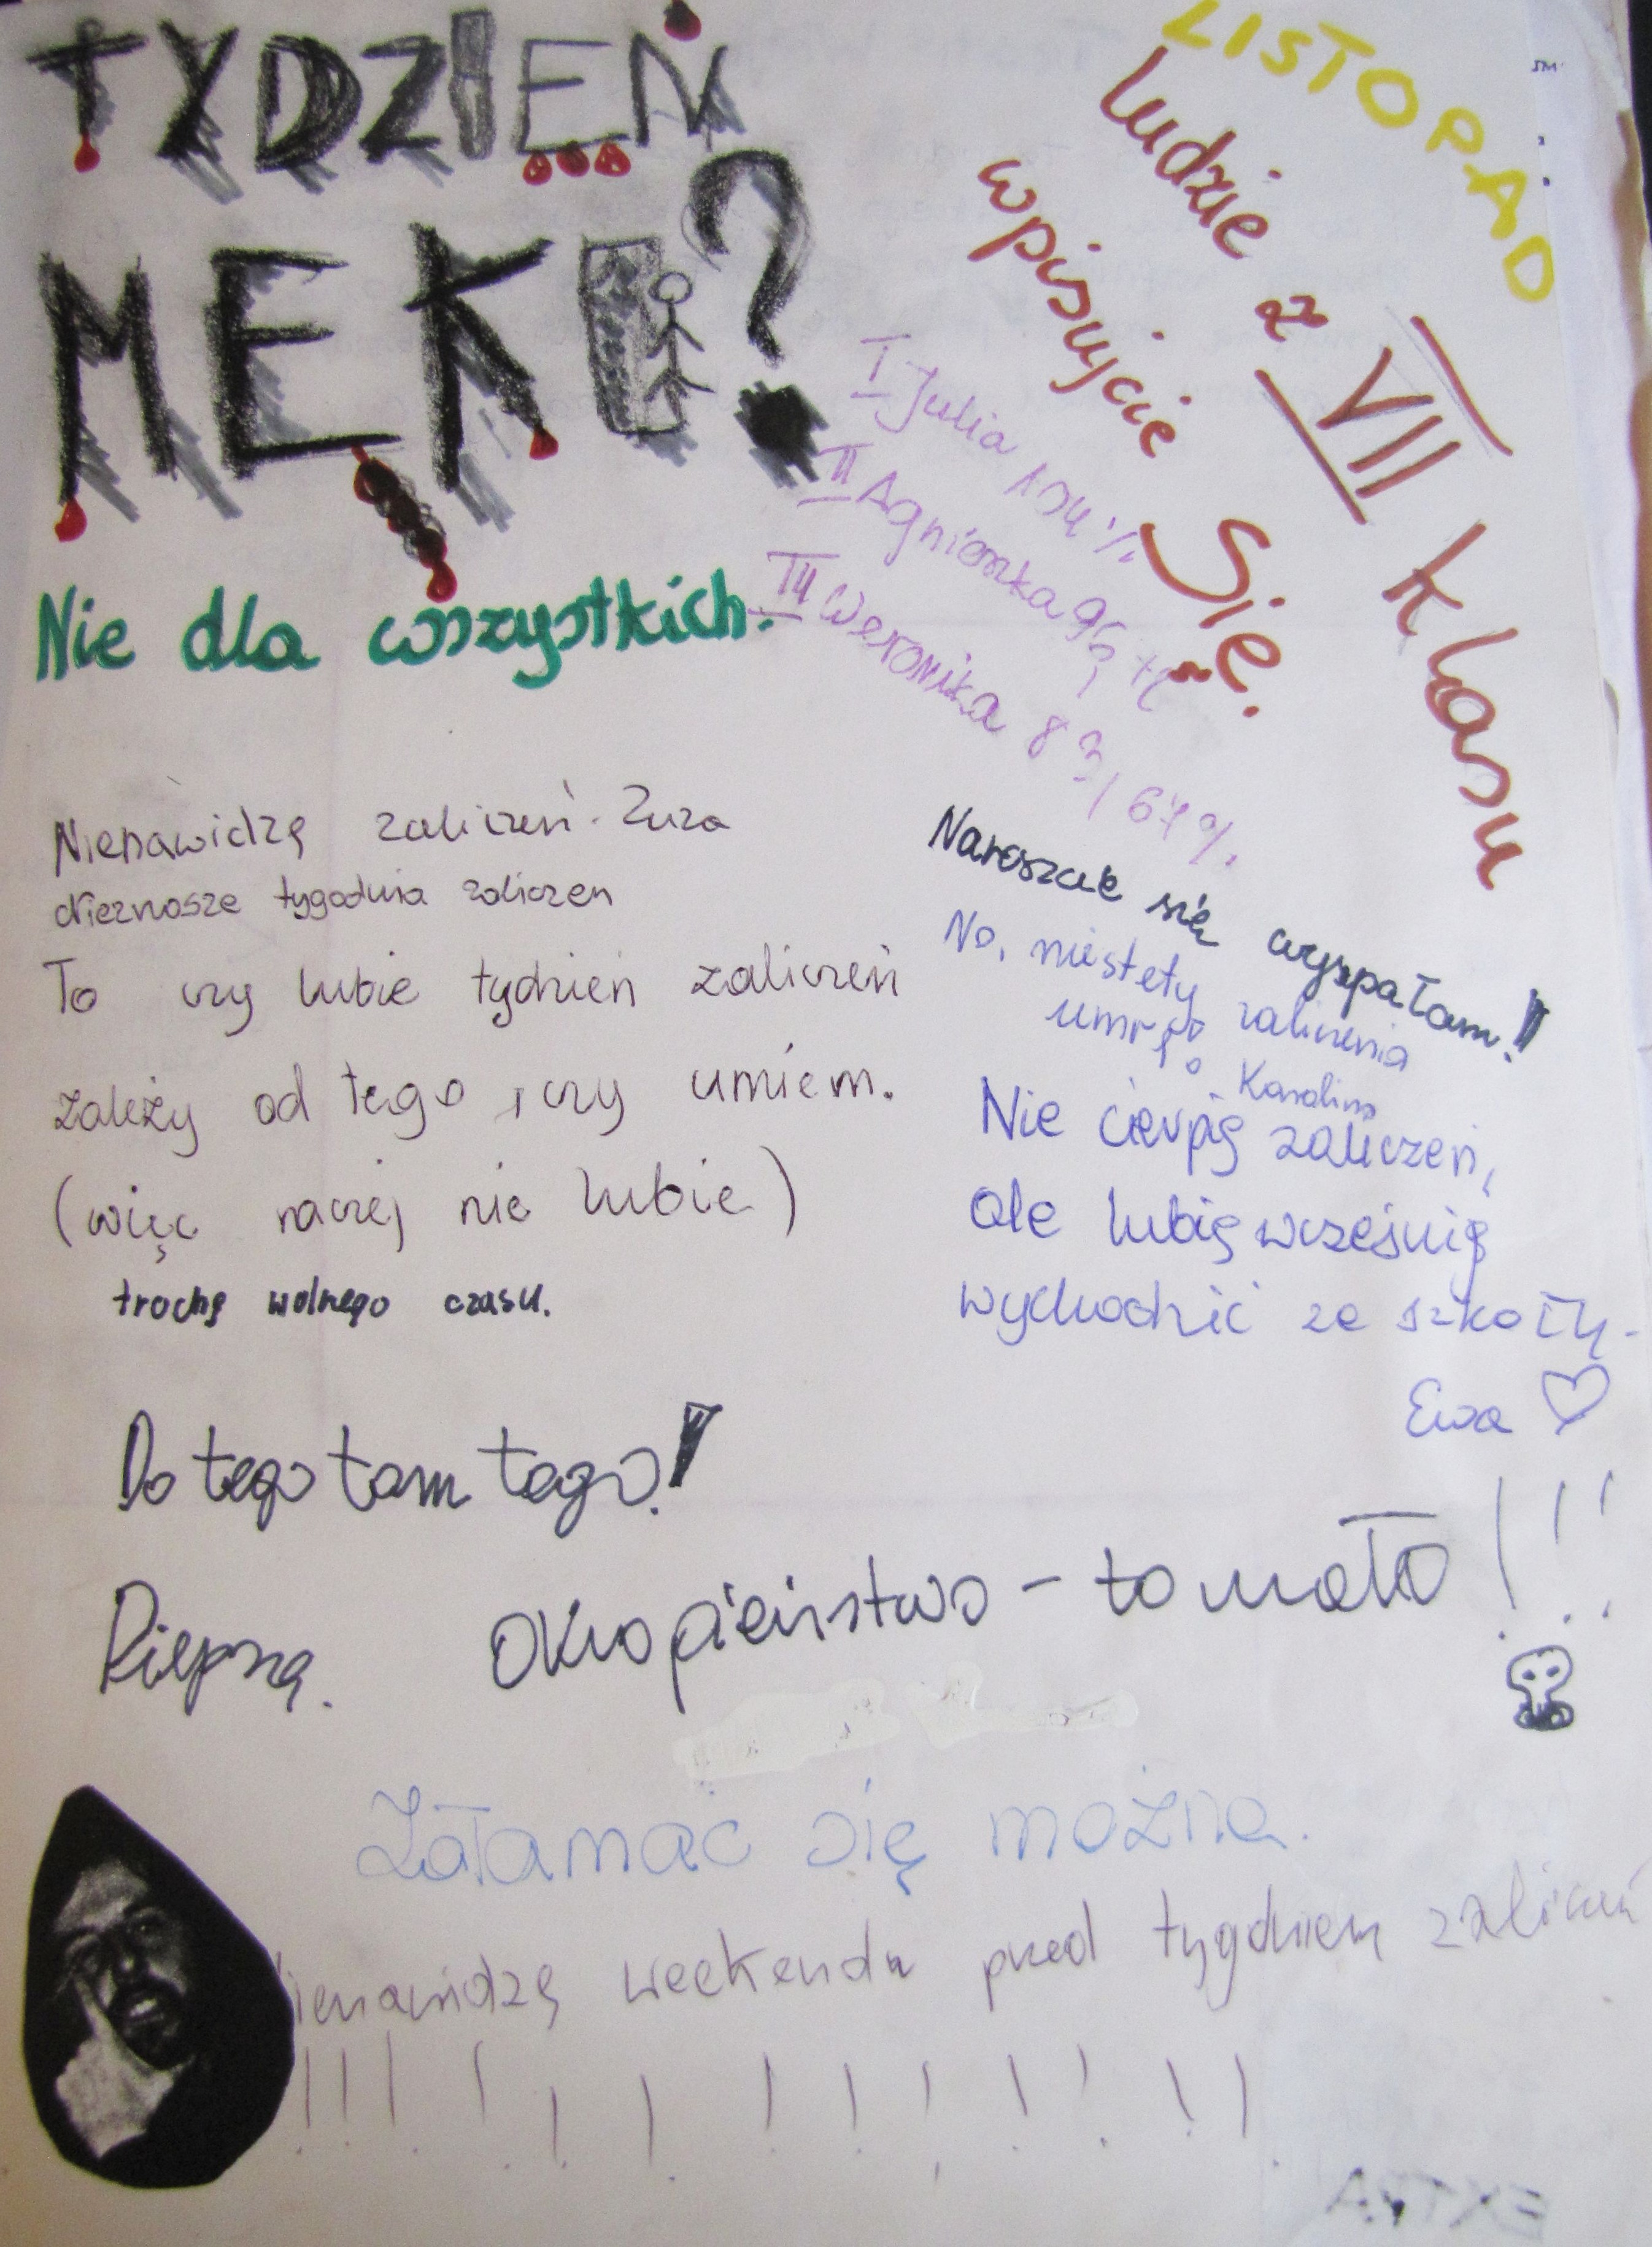 TYDZIEŃ
MĘKI?
Nie dla wszystkich.
LISTOPAD
Ludzie z VII klasu
wpisujcie
się.
I Julia 104%
II Agnieszka 96,
III Weronika 83,67%
Nienawidzę zaliczeń. Zuza
Nieznosze tygodnia zaliczen
To czy lubie tydzień zaliczeń
zależy od tego, czy umiem.
(więc raczej nie lubie)
trochę wolnego czasu.
Nareszcie się wyspałam!
No, niestety zaliczenia
umrę
Karolina
Nie cierpię zaliczeń,
ale lubię wcześnię
wychodzić ze szkoły.
Ewa ♡
Do tego tamtego!
Cierpną. Okropieństwo - to mało!!!
Załamać się można.
ienawidzę weekendu przed tygodniem zaliczeń
!!!!!!!!!!!!!
EXTRA